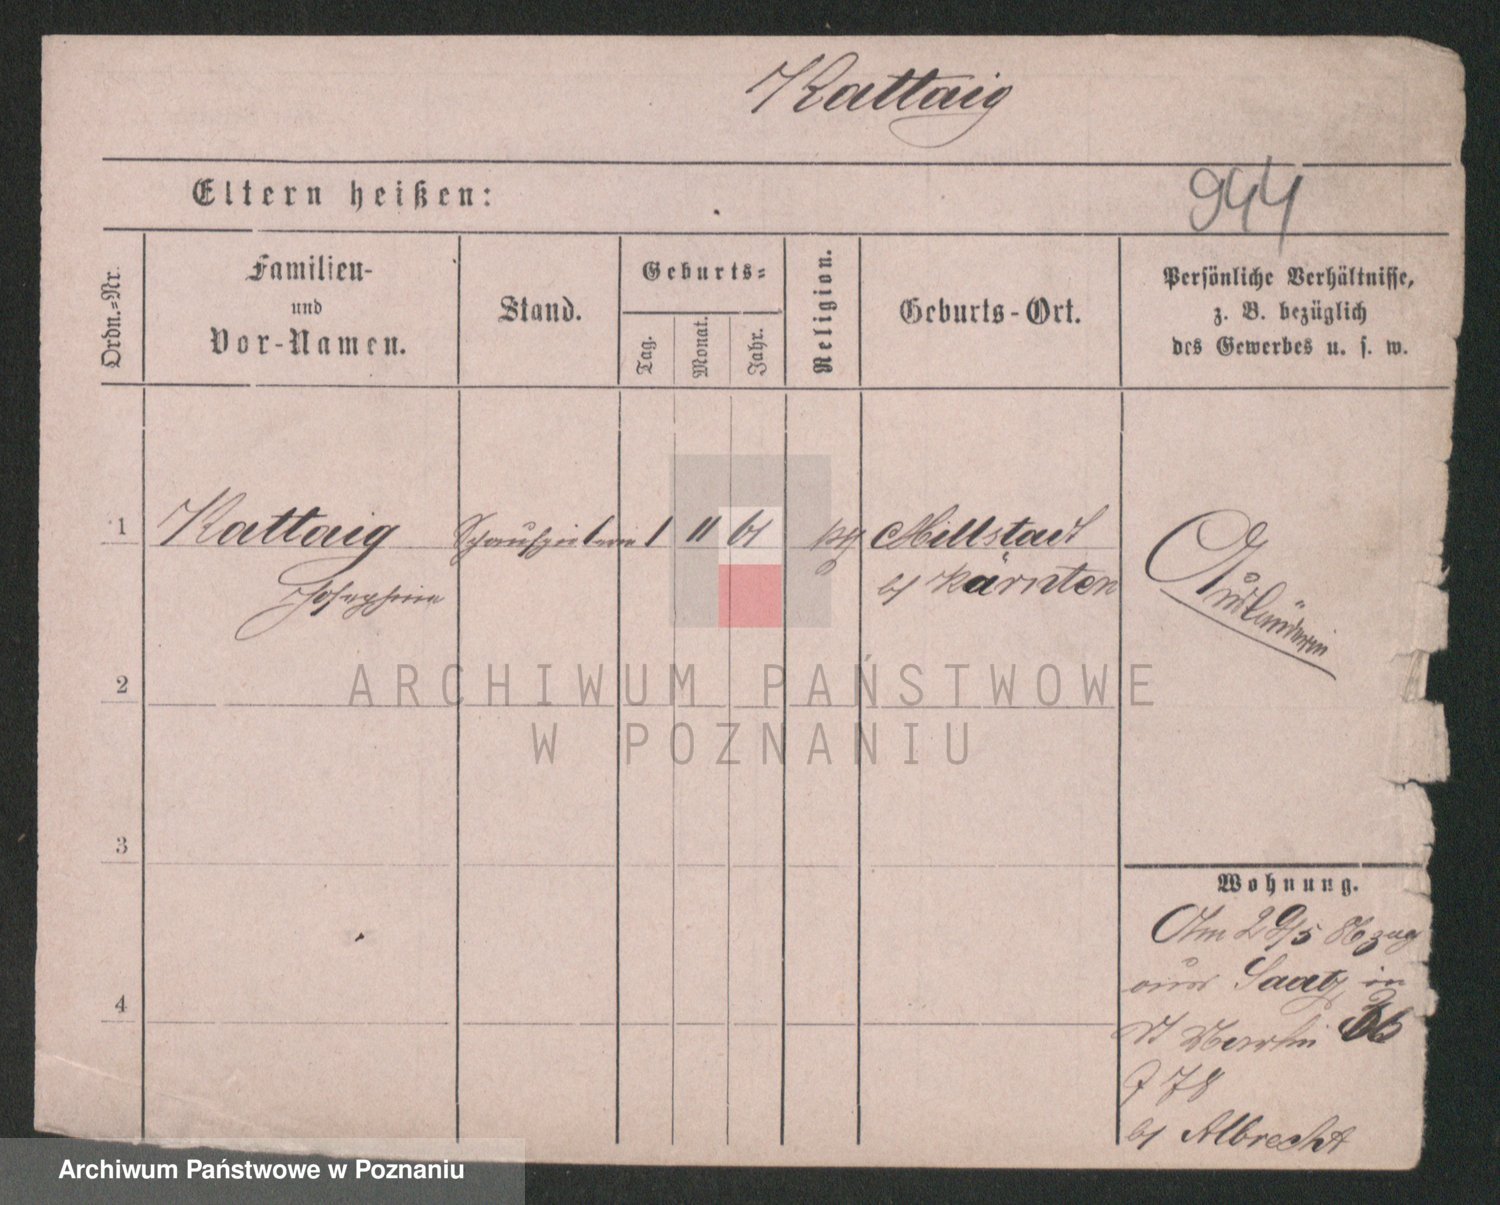 Kattaig
Eltern heißen:
944
Ordn.-Nr.
Familien-
und
Vor-Namen.
Stand.
Geburts-
Tag.
Monat.
Jahr.
Religion.
Geburts-Ort.
Persönliche Verhältnisse,
z. B. bezüglich
des Gewerbes u. s. w.
1 Kattaig Schauspielerin 1 11 61 Millstadt
Josephine
b/ Kärnten
Ausländerin
ARCHIWUM PAŃSTWOWE
W POZNANIU
2
3
4
Wohnung.
Am 29/5 86 zug
aus Saatz in
36
78
b/ Albrecht
Archiwum Państwowe w Poznaniu